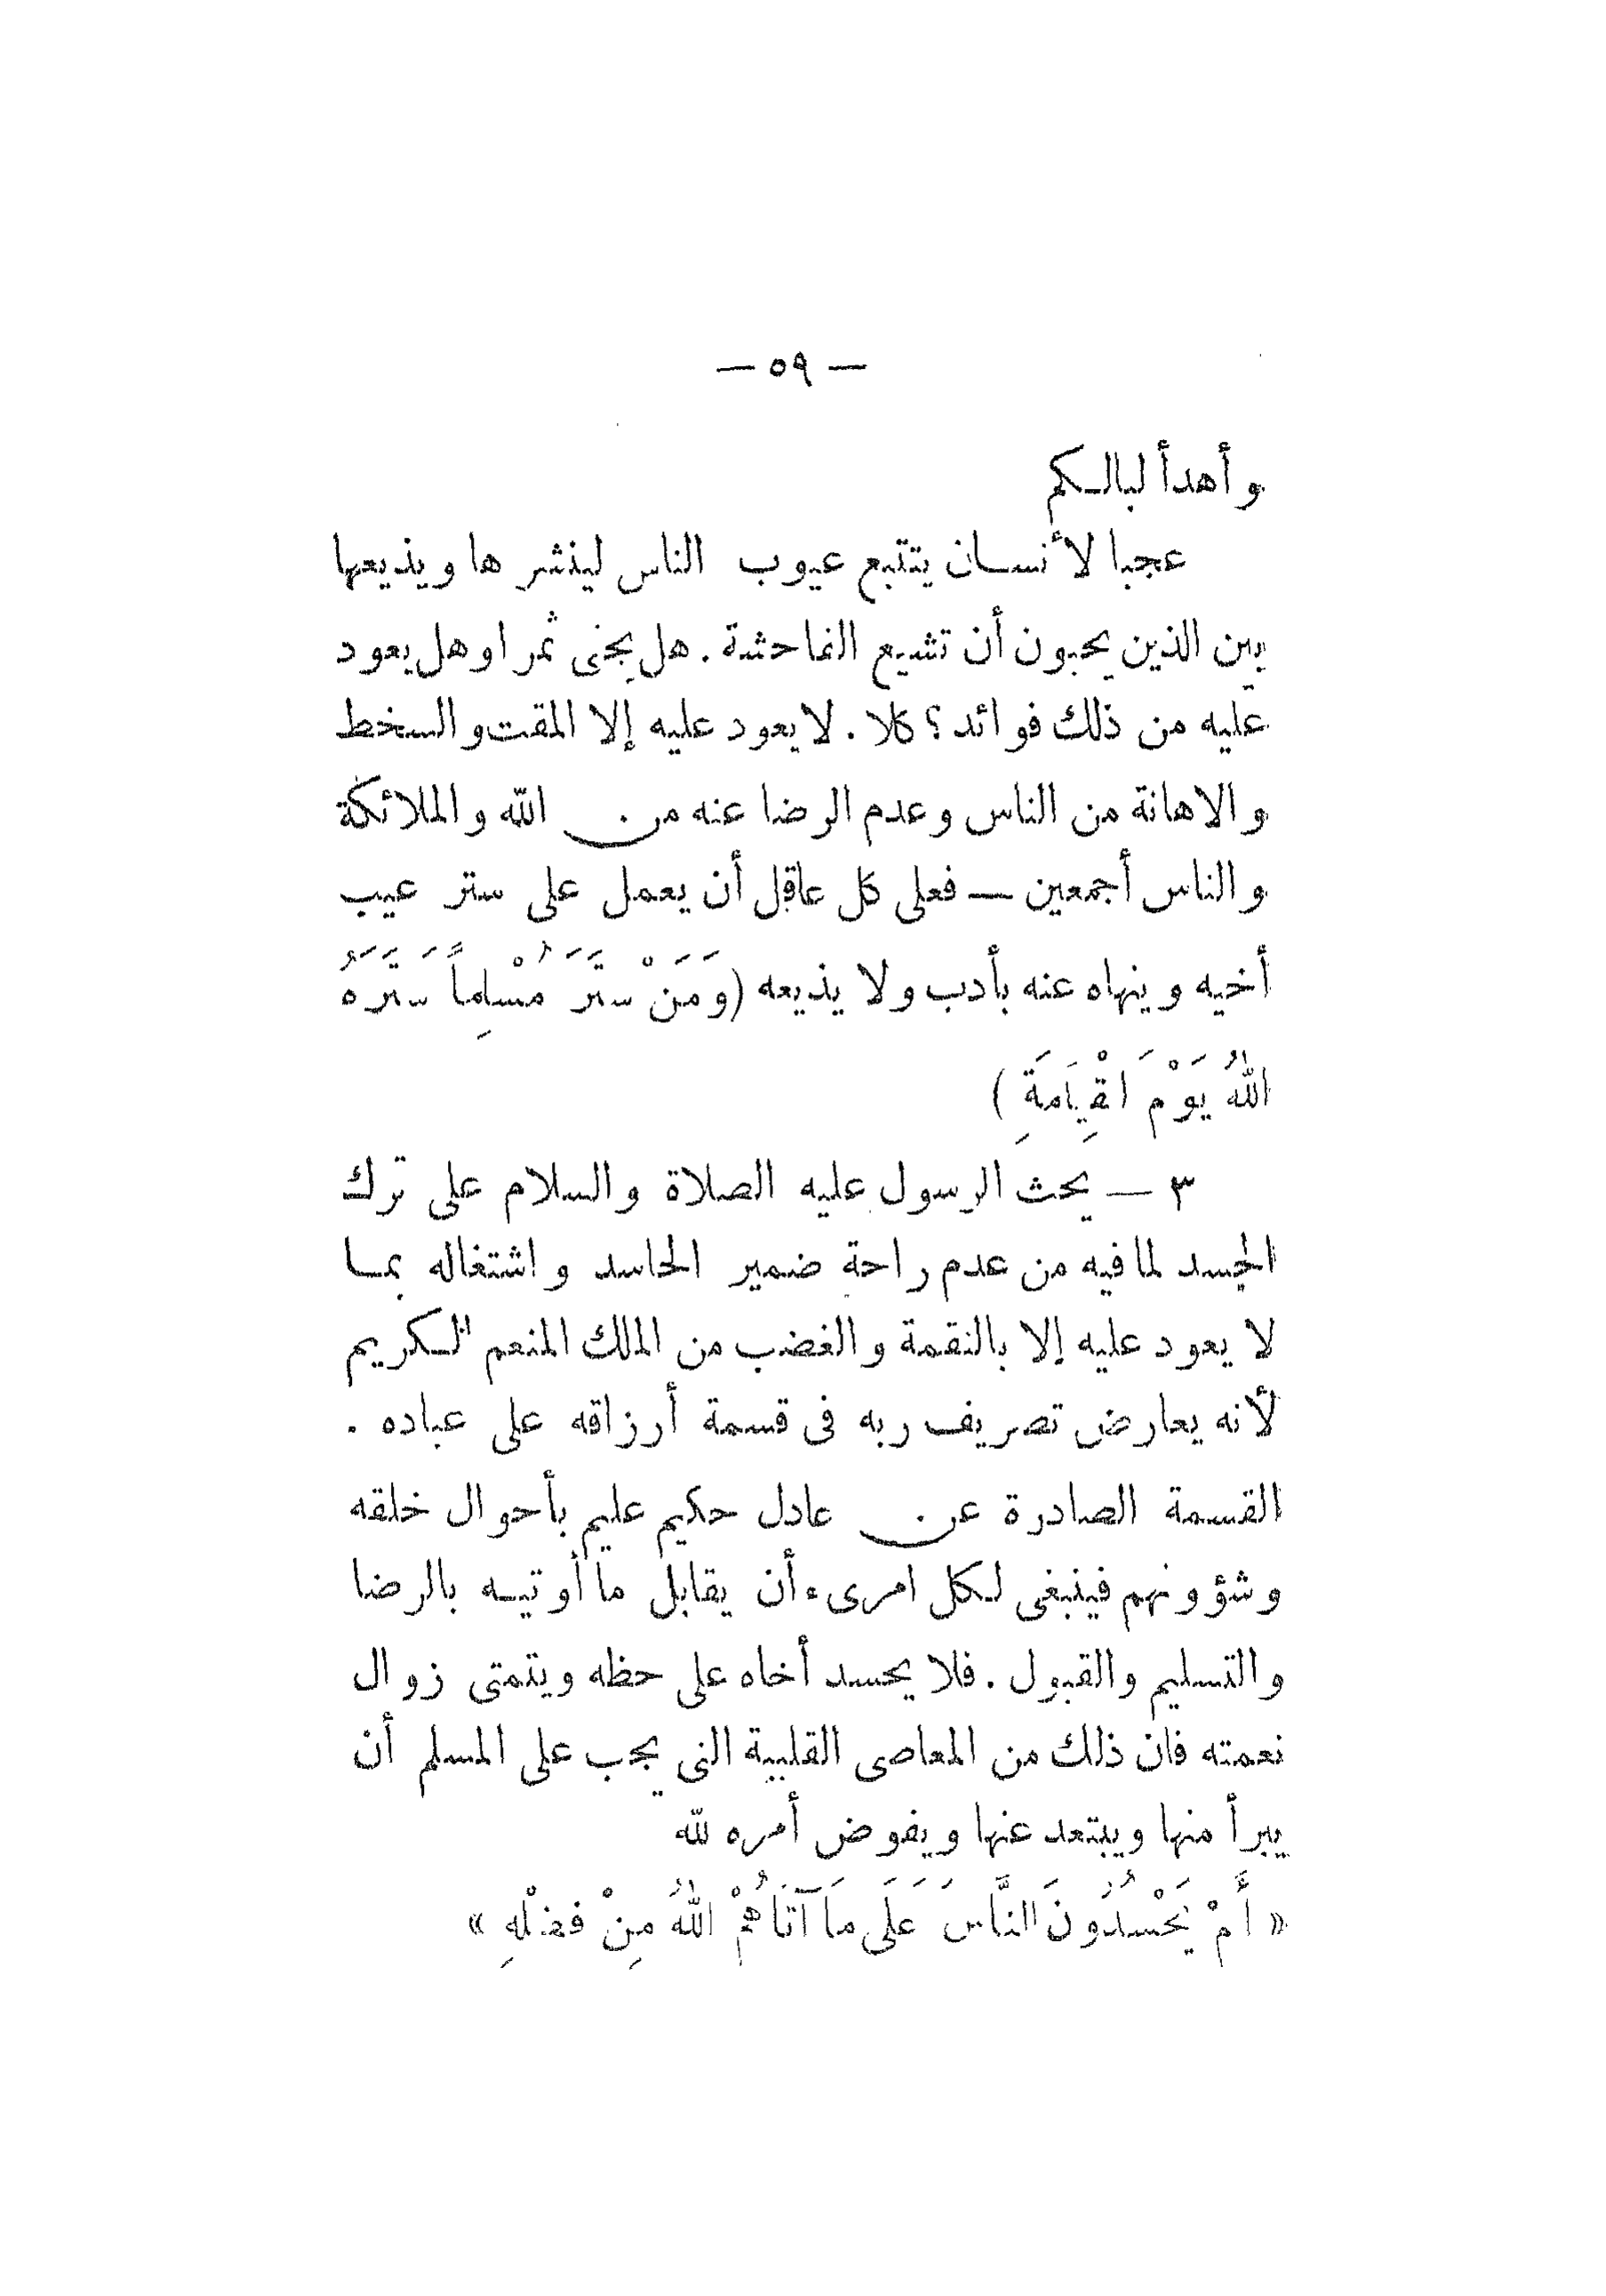 — ٥٩ —
وأهدأ لبالكم
عجبا لأنسان يتتبع عيوب الناس لينشرها ويذيعها
بين الذين يحبون أن تشيع الفاحشة . هل يجنى ثمرا وهل يعود
عليه من ذلك فوائد ؟ كلا . لا يعود عليه إلا المقت والسخط
والاهانة من الناس وعدم الرضا عنه من الله والملائكة
والناس أجمعين — فعلى كل عاقل أن يعمل على ستر عيب
أخيه وينهاه عنه بأدب ولا يذيعه (وَمَنْ سَتَرَ مُسْلِماً سَتَرَهُ
اللهُ يَوْمَ الْقِيَامَةِ )
٣ — يحث الرسول عليه الصلاة والسلام على ترك
الحسد لما فيه من عدم راحة ضمير الحاسد واشتغاله بما
لا يعود عليه إلا بالنقمة والغضب من الملك المنعم الكريم
لأنه يعارض تصريف ربه فى قسمة أرزاقه على عباده .
القسمة الصادرة عن عادل حكيم عليم بأحوال خلقه
وشؤونهم فينبغى لكل امرىء أن يقابل ما أوتيه بالرضا
والتسليم والقبول . فلا يحسد أخاه على حظه ويتمنى زوال
نعمته فان ذلك من المعاصى القلبية التى يجب على المسلم أن
يبرأ منها ويبتعد عنها ويفوض أمره لله
« أَمْ يَحْسُدُونَ النَّاسَ عَلَى مَا آتَاهُمُ اللهُ مِنْ فَضْلِهِ »